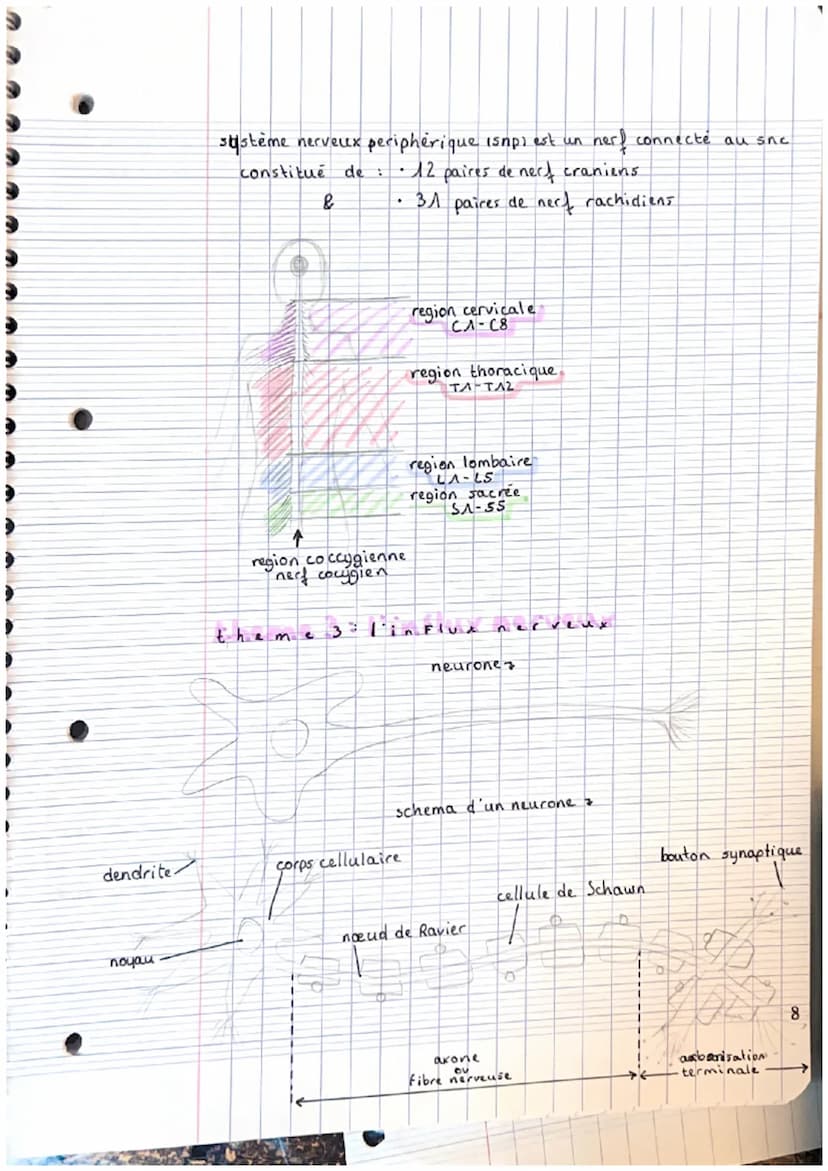 système nerveux periphérique (snp) est un nerf connecté au snc
constitué de : · 12 paires de nerf craniens
& · 31 paires de nerf rachidiens
region cervicale
C1-C8
region thoracique
T1-T12
region lombaire
L1-L5
region sacrée
S1-S5
region coccygienne
nerf
theme 3: l'influx nerveux
neurone
schema d'un neurone
bouton synaptique
dendrite
corps cellulaire
cellule de Schawn
nœud de Ravier
noyau
8
axone
ou
fibre nerveuse
terminale